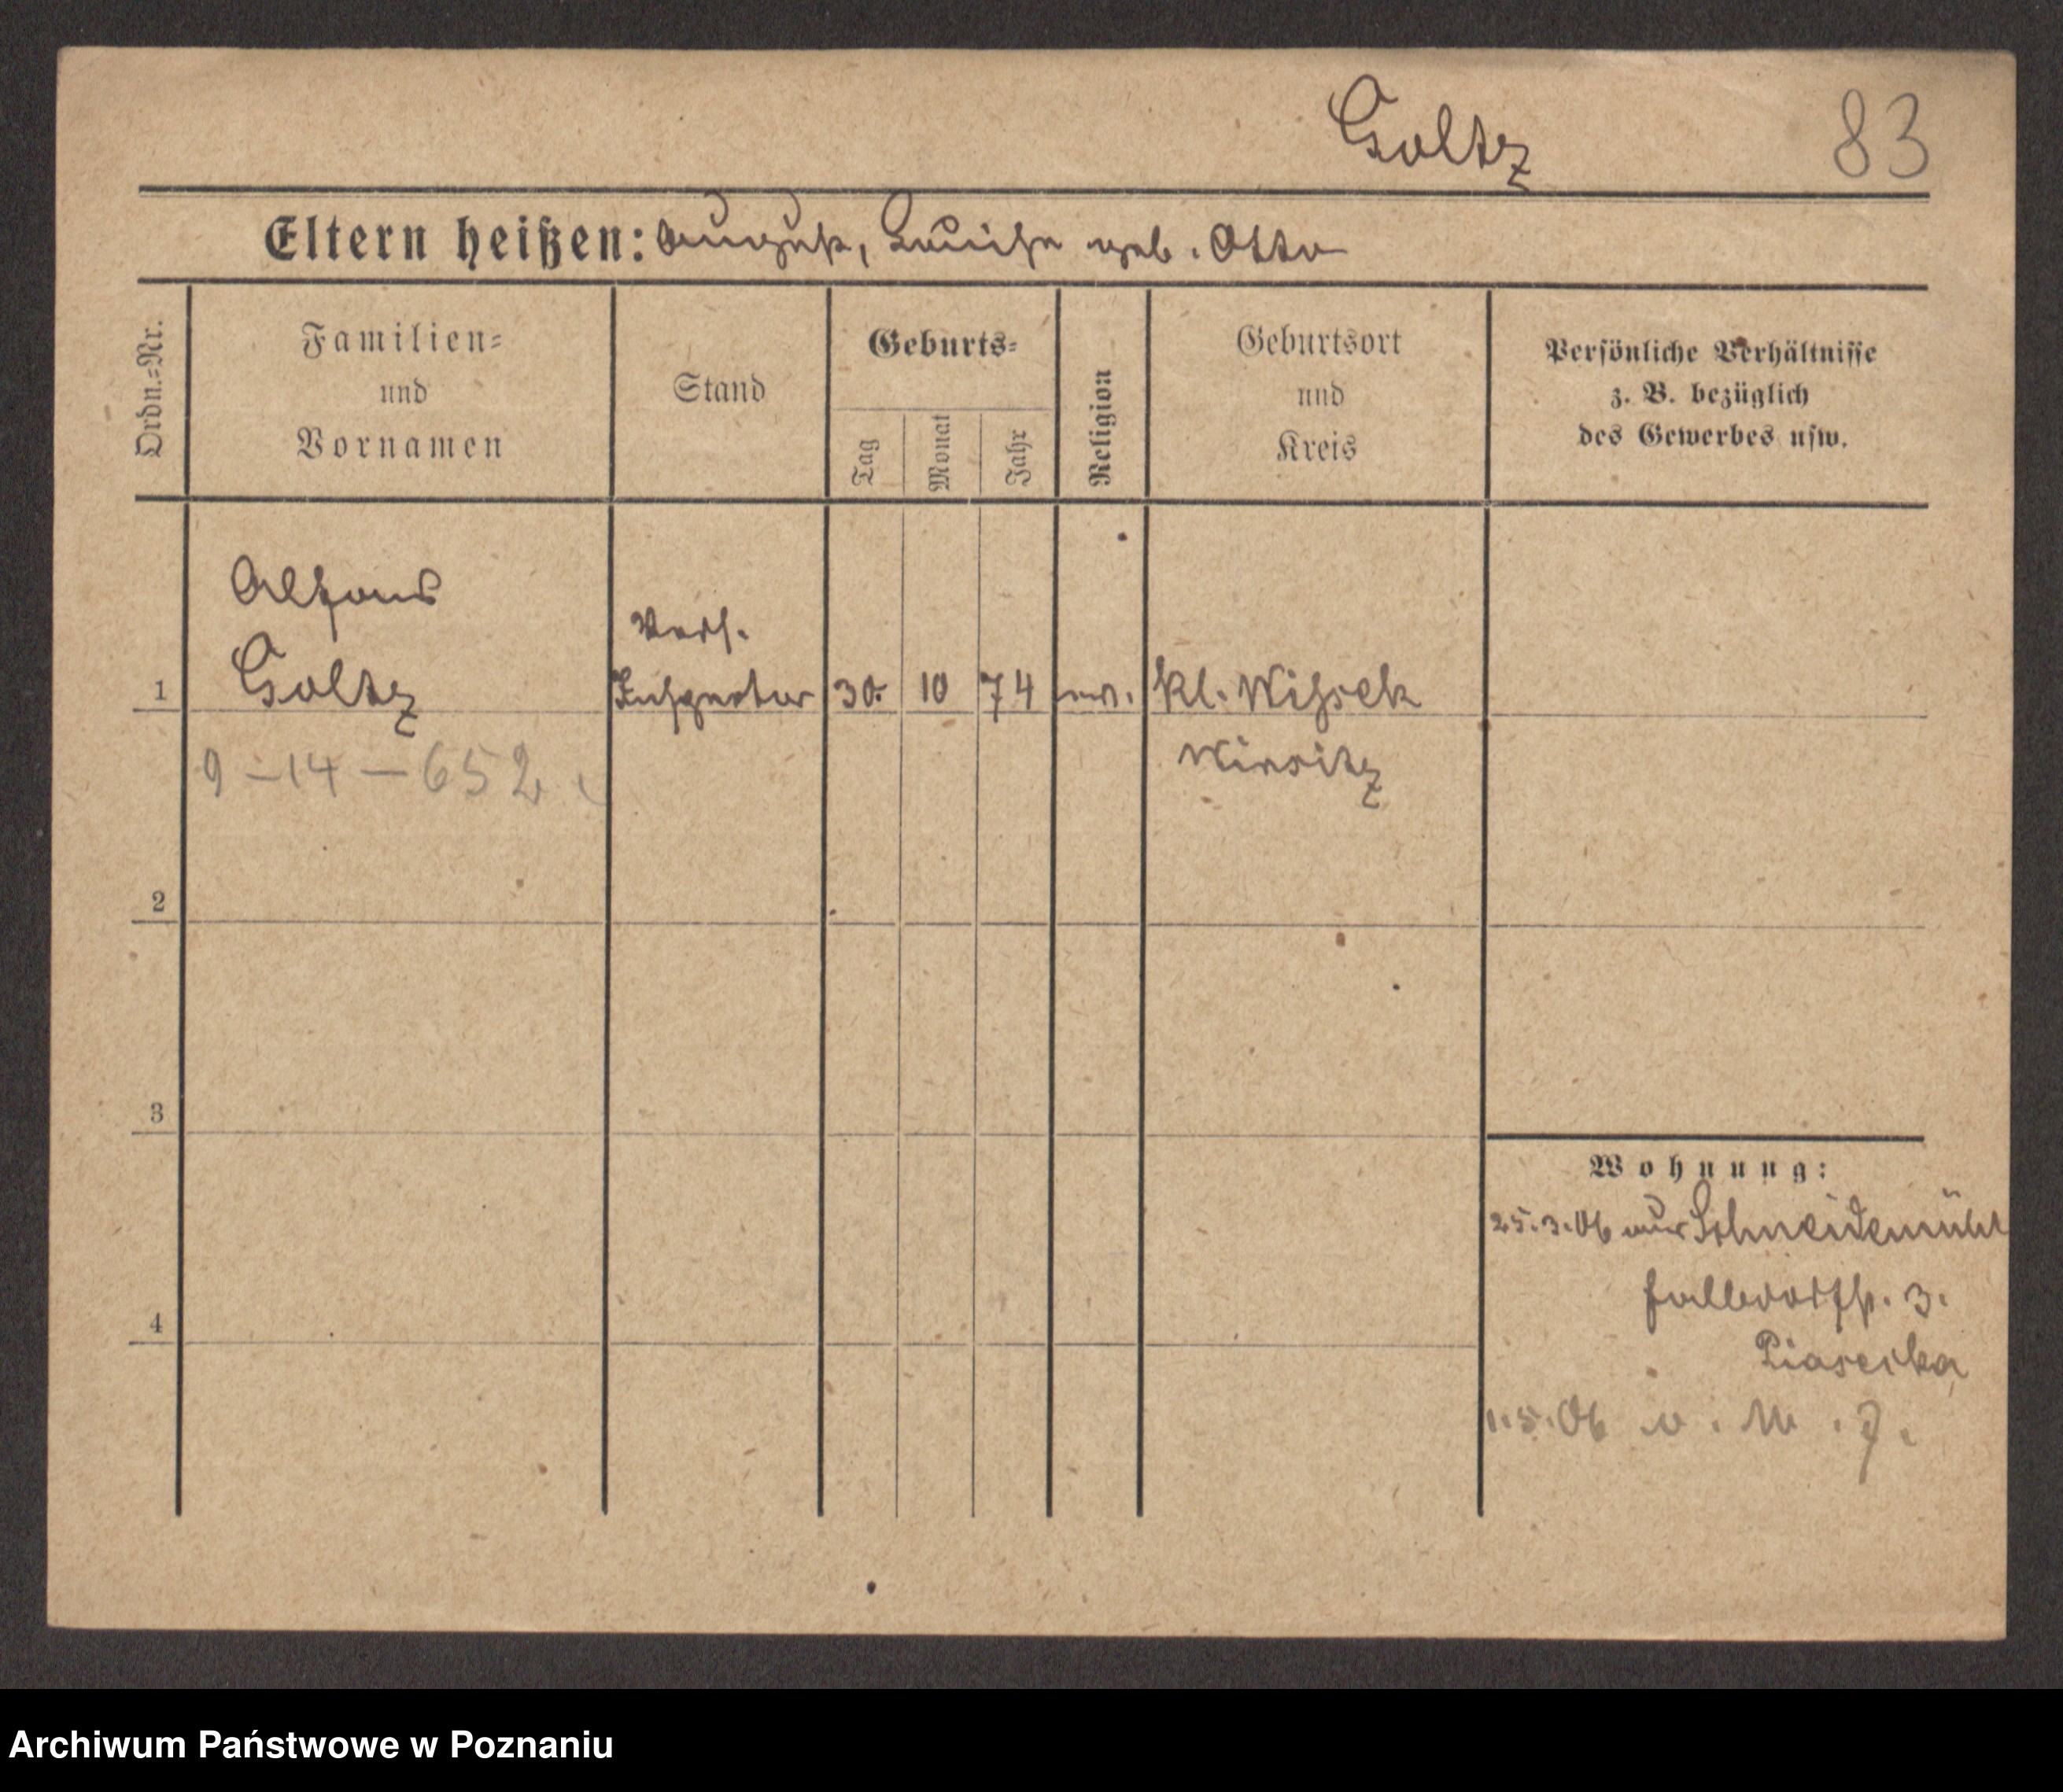 Goltz 83
Eltern heißen: August, Louise geb. Otto
Ordn.=Nr.
Familien=
und
Vornamen
Stand
Geburts=
Tag
Monat
Jahr
Religion
Geburtsort
und
Kreis
Persönliche Verhältnisse
z. B. bezüglich
des Gewerbes usw.
Alfons
Vers.
1 Goltz Inspector 30. 10 74 ev. Kl. Wissek
9 – 14 – 652 Wirsitz
2
3
4
Wohnung:
25.3.06 aus Schneidemühl
3.
Piasecka
1.5.06
Archiwum Państwowe w Poznaniu